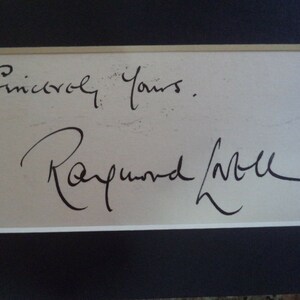 Sincerely Yours.
Raymond Lovell